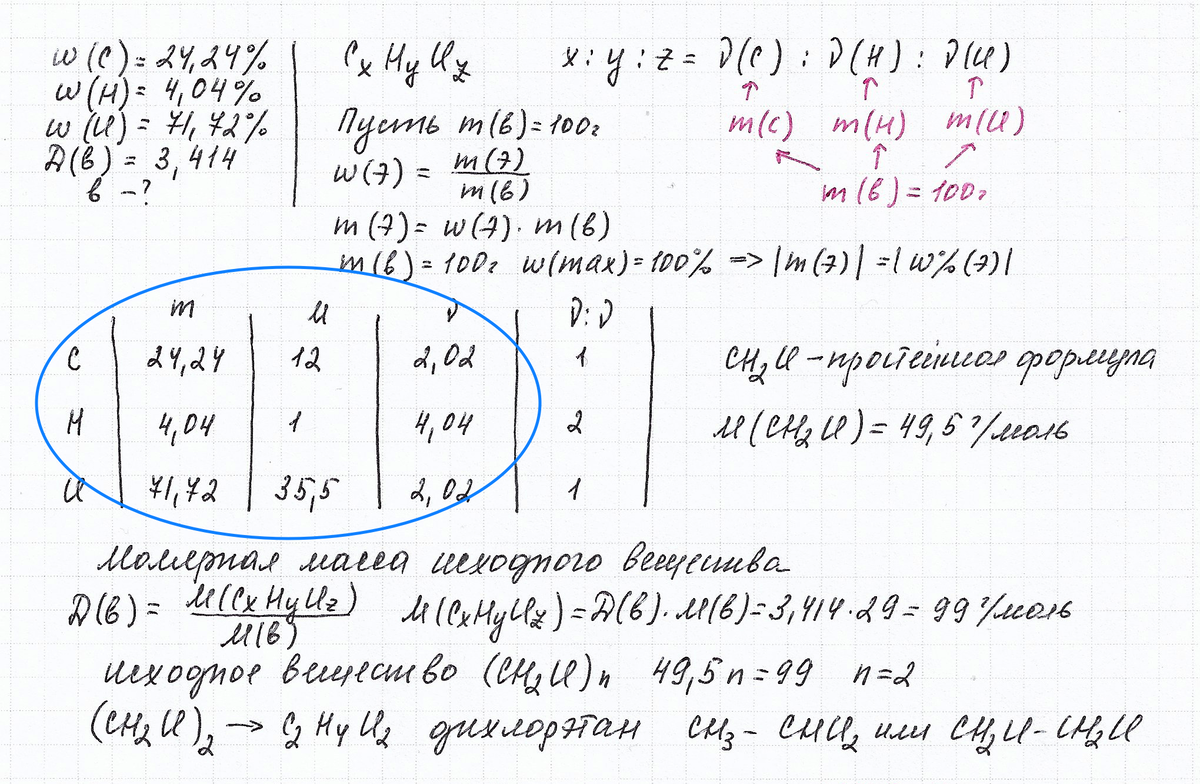 w(C) = 24,24%
w(H) = 4,04%
w(Cl) = 71,72%
D(в) = 3,414
в - ?
CxHyClz x : y : z = ν(C) : ν(H) : ν(Cl)
Пусть m(в) = 100г
m(C) m(H) m(Cl)
w(э) = m(э) / m(в)
m(в) = 100г
m(э) = w(э) · m(в)
m(в) = 100г w(max) = 100% => |m(э)| = |w%(э)|
m M ν ν:ν
C 24,24 12 2,02 1
H 4,04 1 4,04 2
Cl 71,72 35,5 2,02 1
CH2Cl - простейшая формула
M(CH2Cl) = 49,5 г/моль
Молярная масса исходного вещества
D(в) = M(CxHyClz) / M(в) M(CxHyClz) = D(в) · M(в) = 3,414 · 29 = 99 г/моль
исходное вещество (CH2Cl)n 49,5n = 99 n = 2
(CH2Cl)2 → C2H4Cl2 дихлорэтан CH3 - CHCl2 или CH2Cl - CH2Cl